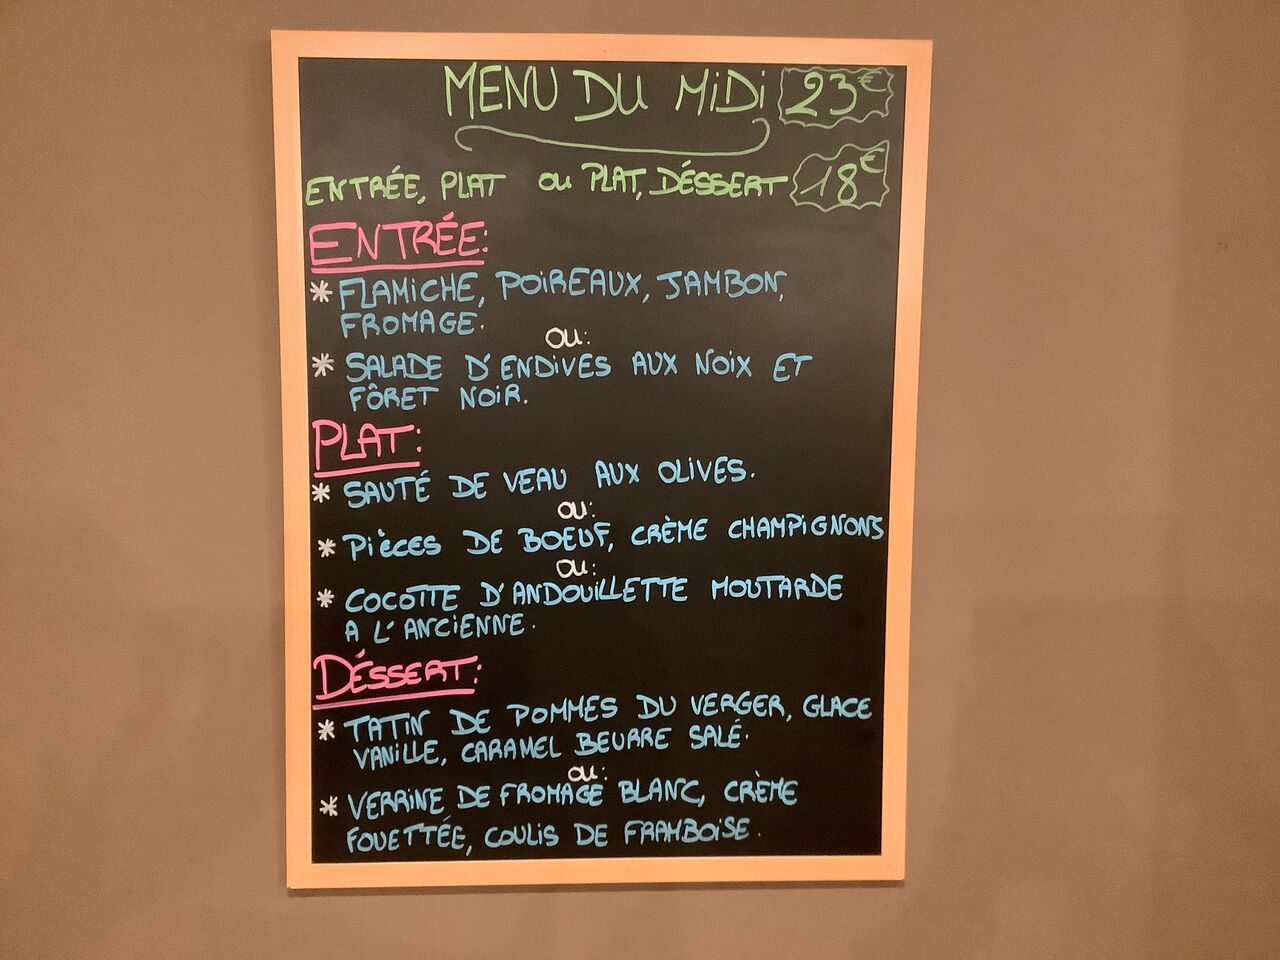 MENU DU MiDi 23€
ENTRÉE, PLAT ou PLAT, DÉSSERT 18€
ENTRÉE:
* FLAMiCHE, POiREAUX, JAMBON,
FROMAGE.
OU:
* SALADE D'ENDiVES AUX NOiX ET
FÔRET NOiR.
PLAT:
* SAUTÉ DE VEAU AUX OLiVES.
OU:
* PiÈCES DE BOEUF, CRÈME CHAMPiGNONS
OU:
* COCOTTE D'ANDOUiLLETTE MOUTARDE
A L'ANCiENNE.
DÉSSERT:
* TATiN DE POMMES DU VERGER, GLACE
VANiLLE, CARAMEL BEURRE SALÉ.
OU:
* VERRiNE DE FROMAGE BLANC, CRÈME
FOUETTÉE, COULiS DE FRAMBOiSE.